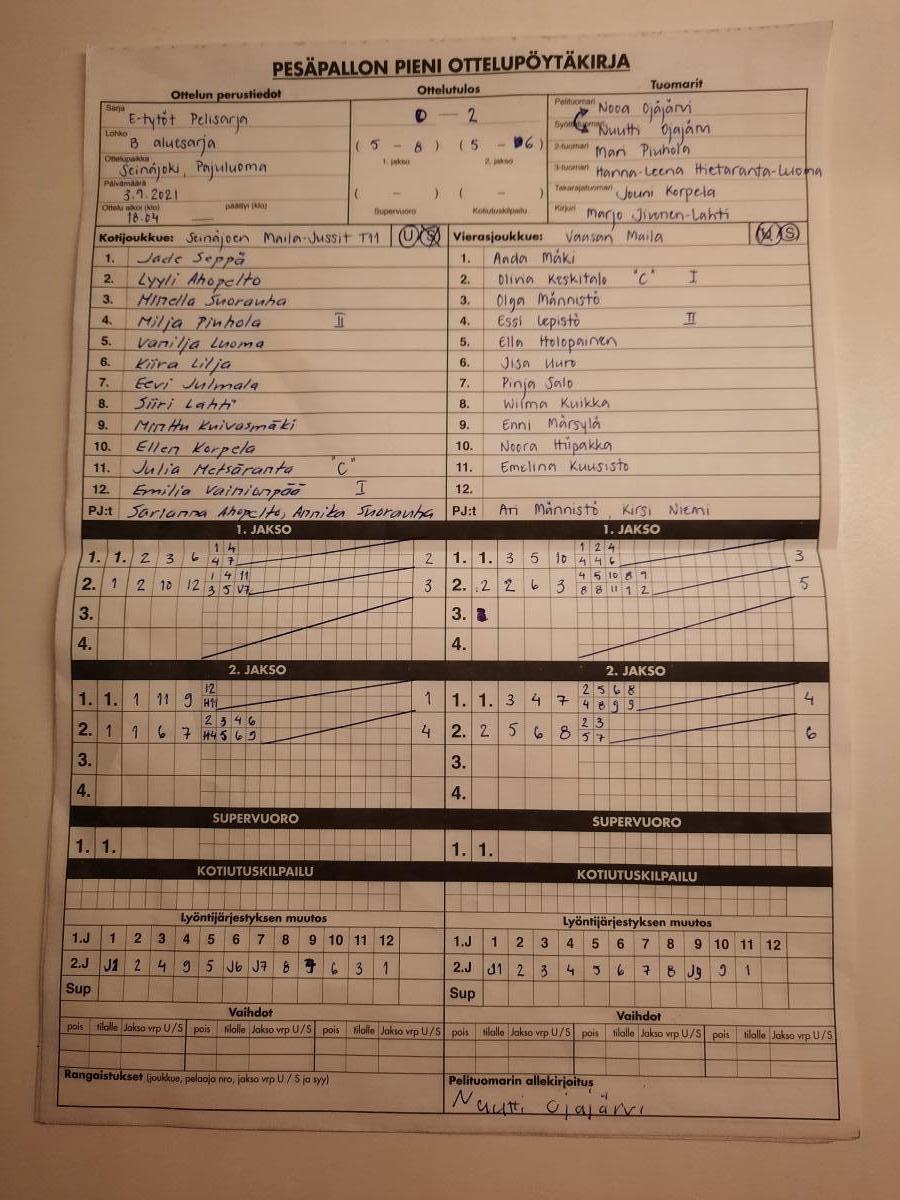 PESÄPALLON PIENI OTTELUPÖYTÄKIRJA
Ottelun perustiedot Ottelutulos Tuomarit
Sarja E-tytöt Pelisarja
Lohko B aluesarja
Ottelupaikka Seinäjoki, Pajuluoma
Päivämäärä 3.7.2021
Ottelu alkoi (klo) 18.04 päättyi (klo) —
0 – 2
( 5 – 8 ) ( 5 – 6 )
1. jakso 2. jakso
( – ) ( – )
Supervuoro Kotiutuskilpailu
Pelituomari Nooa Ojajärvi
Syöttötuomari Nuutti Ojajärvi
2-tuomari Mari Piuhola
3-tuomari Hanna-Leena Hietaranta-Luoma
Takarajatuomari Jouni Korpela
Kirjuri Marjo Jivonen-Lahti
Kotijoukkue: Seinäjoen Maila-Jussit T11 U S
1. Jade Seppä
2. Lyyli Ahopelto
3. Minella Suorauha
4. Milja Piuhola II
5. Vanilja Luoma
6. Kiira Lilja
7. Eevi Julmala
8. Siiri Lahti
9. Minttu Kuivasmäki
10. Ellen Korpela
11. Julia Metsäranta "C"
12. Emilia Vainionpää I
PJ:t Sarianna Ahopelto, Annika Suorauha
Vierasjoukkue: Vaasan Maila U S
1. Aada Mäki
2. Olivia Keskitalo "C" I
3. Olga Männistö
4. Essi Lepistö II
5. Ella Holopainen
6. Jisa Uuro
7. Pinja Salo
8. Wilma Kuikka
9. Enni Märsylä
10. Noora Hiipakka
11. Emelina Kuusisto
12.
PJ:t Ari Männistö, Kirsi Niemi
1. JAKSO
1. 1. 2 3 6 1 4 2
4 7
2. 1 2 10 12 1 4 11 3
3 5 V7
3.
4.
1. JAKSO
1. 1. 3 5 10 1 2 4 3
4 4 6
2. 2 2 6 3 4 5 10 8 9 5
8 8 11 1 2
3.
4.
2. JAKSO
1. 1. 1 11 9 12 1
H11
2. 1 1 6 7 2 3 4 6 4
H4 5 6 9
3.
4.
2. JAKSO
1. 1. 3 4 7 2 5 6 8 4
4 8 9 9
2. 2 5 6 8 2 3 6
5 7
3.
4.
SUPERVUORO SUPERVUORO
1. 1. 1. 1.
KOTIUTUSKILPAILU KOTIUTUSKILPAILU
Lyöntijärjestyksen muutos
1.J 1 2 3 4 5 6 7 8 9 10 11 12
2.J J1 2 4 9 5 J6 J7 8 7 6 3 1
Sup
Lyöntijärjestyksen muutos
1.J 1 2 3 4 5 6 7 8 9 10 11 12
2.J J1 2 3 4 5 6 7 8 J9 9 1
Sup
Vaihdot Vaihdot
pois tilalle Jakso vrp U/S pois tilalle Jakso vrp U/S pois tilalle Jakso vrp U/S
pois tilalle Jakso vrp U/S pois tilalle Jakso vrp U/S pois tilalle Jakso vrp U/S
Rangaistukset (joukkue, pelaaja nro, jakso vrp U / S ja syy)
Pelituomarin allekirjoitus
Nuutti Ojajärvi